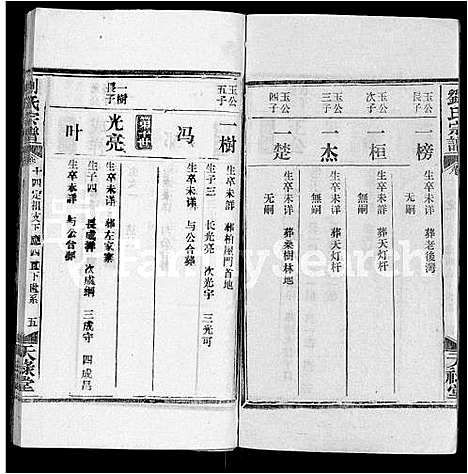 劉氏宗譜
玉公長子
一榜
生卒未詳 葬老後灣
無嗣
玉公次子
一桓
生卒未詳 葬天灯杆
無嗣
玉公三子
一杰
生卒未詳 葬天灯杆
無嗣
玉公四子
一楚
生卒未詳 葬桑樹林地
無嗣
天祿堂
玉公五子
一樹
生卒未詳 葬柏屋門首地
馮
生卒未详 与公合葬
生子三 长光亮 次光宇 三光可
一樹長子
光亮
生卒未详 葬左家寨
生子四 長成 次成綱 三成守 四成昌
叶
生卒未详 与公合葬
劉氏宗譜
十四定祖支下 四 下世系 五
天祿堂